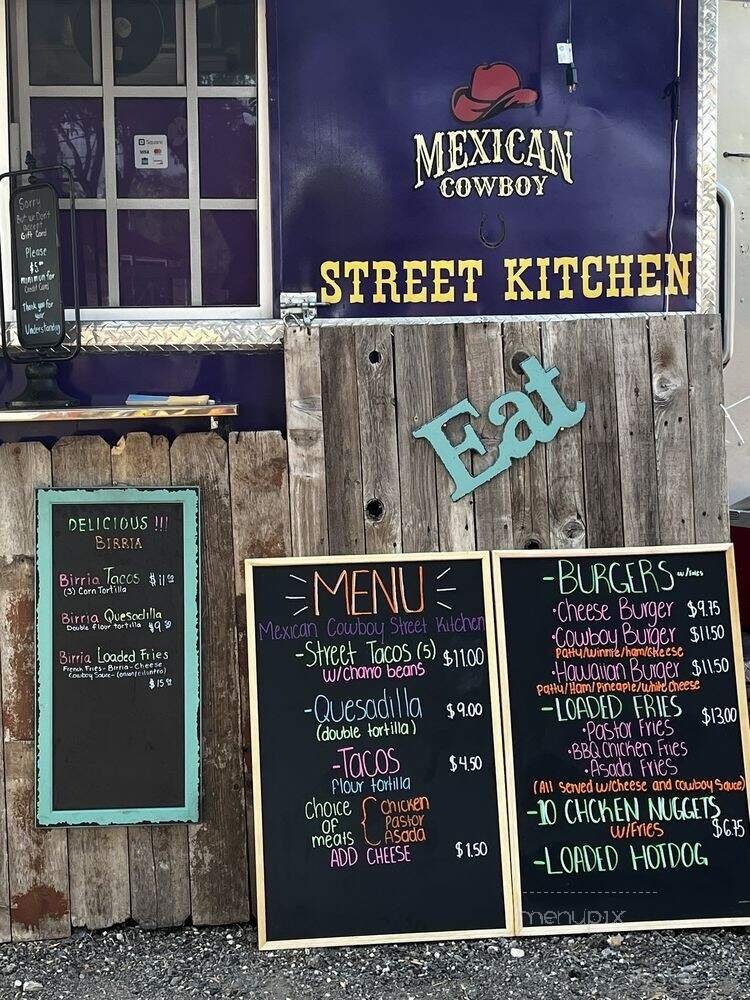 MEXICAN
COWBOY
STREET KITCHEN
Square
VISA
Sorry
But we Don't
accept
Gift Card
Please
$5.00
minimun for
Credit Card
Thank you for
your
Understanding
Eat
DELICIOUS !!!
BIRRIA
Birria Tacos $11.00
(3) Corn Tortilla
Birria Quesadilla
Double flour tortilla $9.50
Birria Loaded Fries
French Fries - Birria - Cheese
Cowboy Sauce - (onion/cilantro)
$15.00
MENU
Mexican Cowboy Street Kitchen
-Street Tacos (5) $11.00
w/charro beans
-Quesadilla $9.00
(double tortilla)
-Tacos $4.50
flour tortilla
Choice of meats { Chicken
Pastor
Asada
ADD CHEESE $1.50
-BURGERS w/fries
·Cheese Burger $9.75
·Cowboy Burger $11.50
Patty/Winnie/ham/Cheese
·Hawaiian Burger $11.50
Patty/Ham/Pineaple/White Cheese
-LOADED FRIES $13.00
·Pastor Fries
·BBQ Chicken Fries
·Asada Fries
(All served w/Cheese and cowboy Sauce)
-10 CHCKEN NUGGETS
w/Fries $6.75
-LOADED HOTDOG
menupix